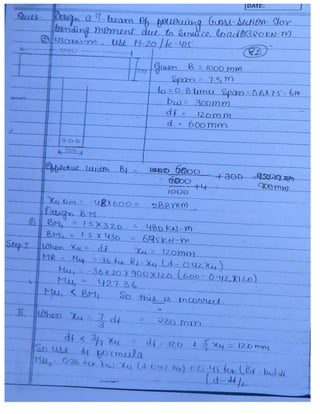 DATE:
Ques. Design a T-beam of following cross-section for
bending moment due to service load ① 320 KN-m
② 430 KN-m. Use M-20 / Fe-415
1000
given B = 1000 mm
Span = 7.5 m
lo = 0.8 times Span = 0.8 x 7.5 = 6m
bw = 300mm
df = 120mm
d = 600mm
300
Effective width Bf = 6000 + 300
6000/1000 + 4
900mm
Xu lim = .48x600 = 288mm
Design B.M
BM1 = 1.5 X 320 = 480 KN-m
BM2 = 1.5 x 430 = 645 KN-m
Step I when Xu = df Xu = 120mm
MR = Mu1 = .36 fck Bf. Xu (d - 0.42 Xu)
Mu1 = .36x20x900x120 (600 - 0.42x120)
Mu1 = 427.36
Mu1 < BM1 So this is incorrect.
II. When Xu = 7/3 df = 280 mm
df < 3/7 Xu df = 120 Xu = 120mm
So use df formula
Mu2 = 0.36 fck bw Xu (d - 0.42 Xu) + 0.45 fck (Bf - bw) df
(d - df/2